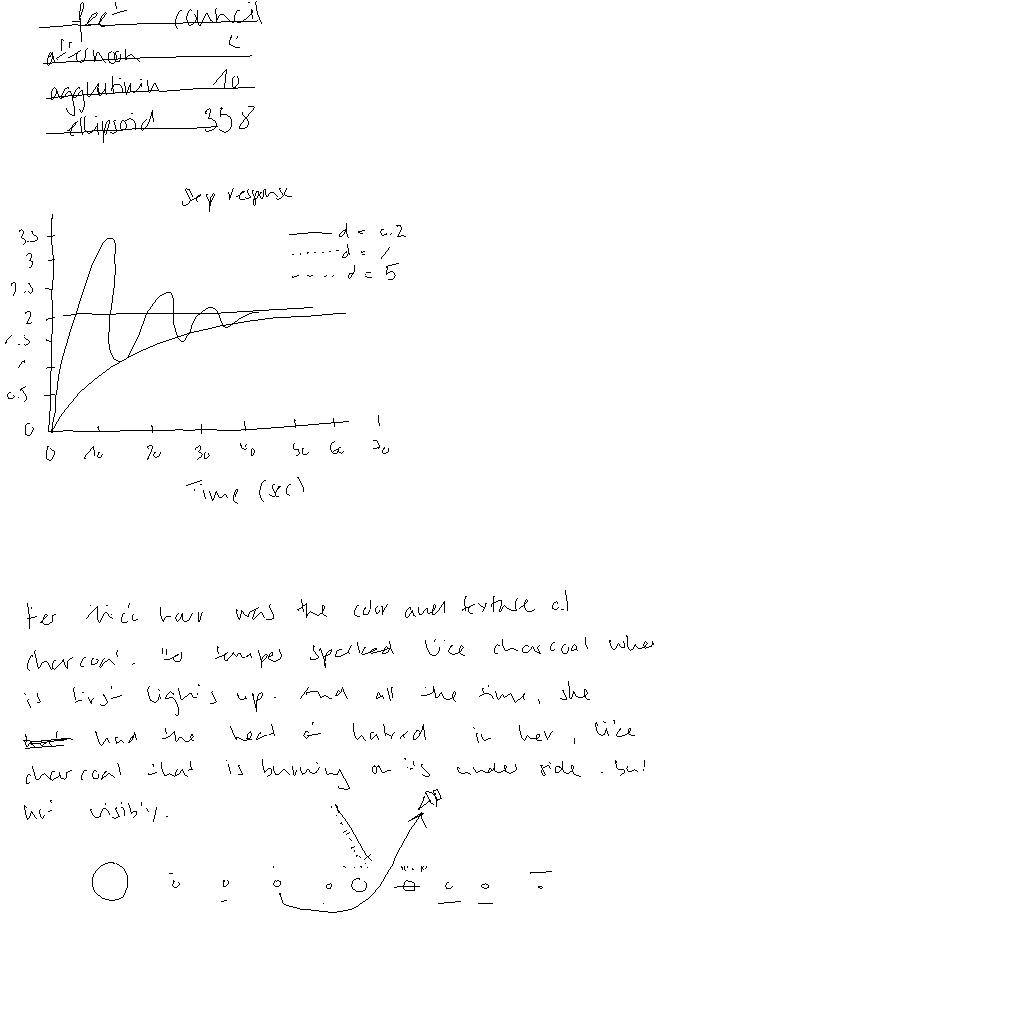 feet council
afternoon
agglutinin 10
ellipsoid 358
step response
3.5
d = 0.2
3
d = 1
2.5
d = 5
2
1.5
1
0.5
0
0 10 20 30 40 50 60 70
Time (sec)
Her thick hair was the color and texture of
charcoal. Its temper sparked like charcoal when
is first lights up. And all the time, she
had the heat of hatred in her, like
charcoal that is burning on its under side. but
not visibly.